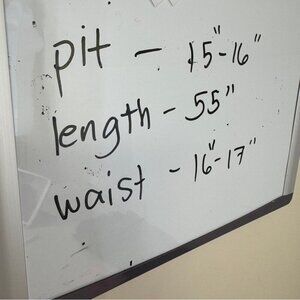 pit - 15"-16"
length - 55"
waist - 16"-17"